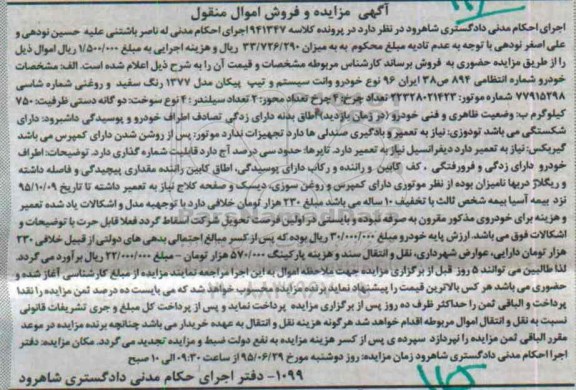 آگهی مزایده و فروش اموال منقول
اجرای احکام مدنی دادگستری شاهرود در نظر دارد در پرونده کلاسه ۹۴۱۳۴۷ اجرای احکام مدنی له ناصر باشتنی علیه حسین نودهی و
علی اصغر نودهی با توجه به عدم تادیه مبلغ محکوم به به میزان ۳۳/۷۲۶/۲۹۰ ریال و هزینه اجرایی به مبلغ ۱/۵۰۰/۰۰۰ ریال اموال ذیل
را از طریق مزایده حضوری به فروش برساند کارشناس مربوطه مشخصات و قیمت آن را به شرح ذیل اعلام شده است. الف: مشخصات
خودرو شماره انتظامی ۸۹۴ ص۳۸ ایران ۹۶ نوع خودرو وانت سیستم و تیپ پیکان مدل ۱۳۷۷ رنگ سفید و روغنی شماره شاسی
۷۷۹۱۵۲۹۸ شماره موتور: ۲۳۳۲۸۰۲۱۴۲۳ تعداد چرخ: ۴ چرخ تعداد محور: ۲ تعداد سیلندر: ۴ نوع سوخت: دو گانه دستی ظرفیت: ۷۵۰
کیلوگرم ب: وضعیت ظاهری و فنی خودرو (در زمان بازدید) اطاق بدنه دارای زدگی تصادف اطراف خودرو و پوسیدگی داشبورد: دارای
شکستگی می باشد تودوزی: نیاز به تعمیر و یادگیری صندلی ها دارد تجهیزات ندارد موتور: پس از روشن شدن دارای کمپرس می باشد
گیربکس: نیاز به تعمیر دارد دیفرانسیل نیاز به تعمیر دارد. تایرها: حدود سی درصد آج دارد قابلیت شماره گذاری دارد. توضیحات: اطراف
خودرو دارای زدگی و فرورفتگی . کف کابین و راننده و رکاب دارای پوسیدگی، اطاق کابین راننده مقداری پیچیدگی و فاصله داشته
و ریگلاژ دربها نامیزان بوده از نظر موتوری دارای کمپرس و روغن سوزی، دیسک و صفحه کلاج نیاز به تعمیر داشته تا تاریخ ۹۵/۱۰/۰۹
نزد بیمه آسیا بیمه شخص ثالث با تخفیف ۱۰ ساله می باشد مبلغ ۲۳۰ هزار تومان خلافی دارد با توجه به مدل و اشکالات یاد شده تعمیر
و هزینه برای خودروی مذکور مقرون به صرفه نمی باشد و بایستی در اولین فرصت تحویل شرکت اسقاط گردد فعلا قابل حرت با توضیحات و
اشکالات فوق می باشد. ارزش پایه خودرو مبلغ ۳۰/۰۰۰/۰۰۰ ریال بوده که پس از کسر مبالغ اجتمالی بدهی های دولتی از قبیل خلافی ۲۳۰
هزار تومان دارایی، عوارض شهرداری، نقل و انتقال سند و هزینه پارکینگ ۵۷۰/۰۰۰ هزار تومان – مبلغ ۲۲/۰۰۰/۰۰۰ ریال برآورد می گردد.
لذا طالبین می توانند ۵ روز قبل از برگزاری مزایده جهت ملاحظه اموال به این اجرا مراجعه نمایند مزایده از مبلغ کارشناسی آغاز شده و
حضوری می باشد هر کس بالاترین قیمت را پیشنهاد نماید برنده مزایده محسوب خواهد شد که می بایست ده درصد ثمن مزایده را نقدا
پرداخت و الباقی ثمن را حداکثر ظرف ده روز پس از برگزاری مزایده پرداخت نماید و پس از پرداخت کل مبلغ و جری تشریفات قانونی
نسبت به نقل و انتقال اموال مربوطه اقدام خواهد شد هرگونه هزینه نقل و انتقال به عهده خریدار می باشد چنانچه برنده مزایده در موعد
مقرر الباقی ثمن مزایده را نپردازد سپرده ی پس از کسر هزینه مزایده به نفع دولت ضبط و مزایده تجدید می گردد. مکان مزایده: دفتر
اجرا احکام مدنی دادگستری شاهرود زمان مزایده: روز دوشنبه مورخ ۹۵/۰۶/۲۹ از ساعت ۰۹:۳۰ الی ۱۰ صبح
۱۰۹۹- دفتر اجرای حکام مدنی دادگستری شاهرود